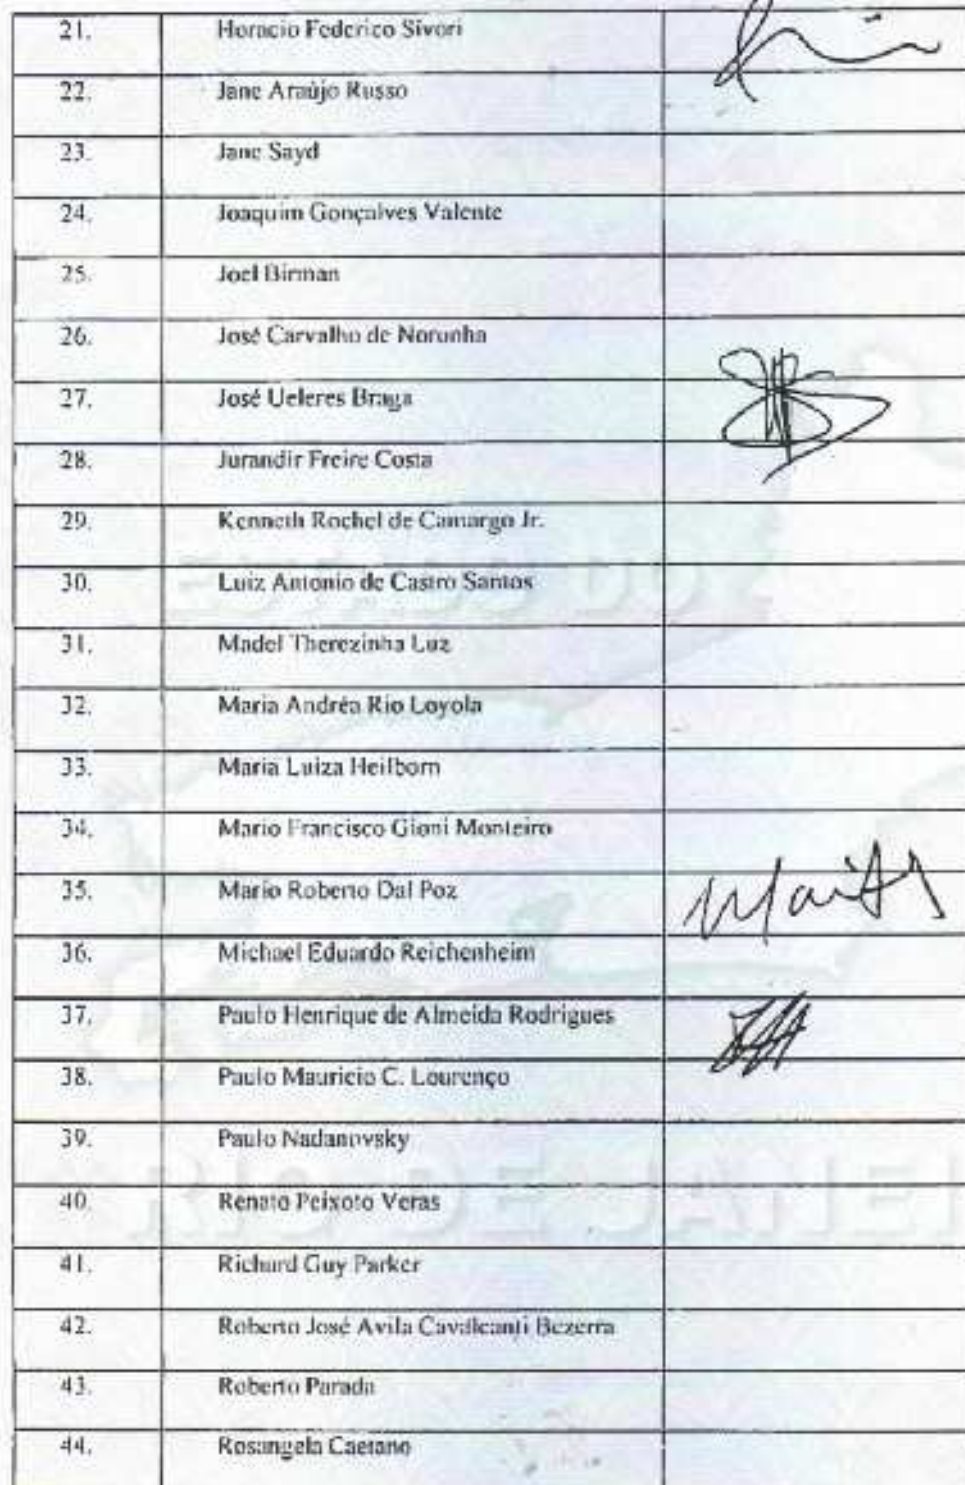 21. Horacio Federico Sívori
22. Jane Araújo Russo
23. Jane Sayd
24. Joaquim Gonçalves Valente
25. Joel Birman
26. José Carvalho de Noronha
27. José Ueleres Braga
28. Jurandir Freire Costa
29. Kenneth Rochel de Camargo Jr.
30. Luiz Antonio de Castro Santos
ESTADO DO
31. Madel Therezinha Luz
32. Maria Andréa Rio Loyola
33. Maria Luiza Heilborn
34. Mario Francisco Gioni Monteiro
35. Mario Roberto Dal Poz
36. Michael Eduardo Reichenheim
37. Paulo Henrique de Almeida Rodrigues
38. Paulo Mauricio C. Lourenço
39. Paulo Nadanovsky
40. Renato Peixoto Veras
41. Richard Guy Parker
42. Roberto José Avila Cavalcanti Bezerra
43. Roberto Parada
44. Rosangela Caetano